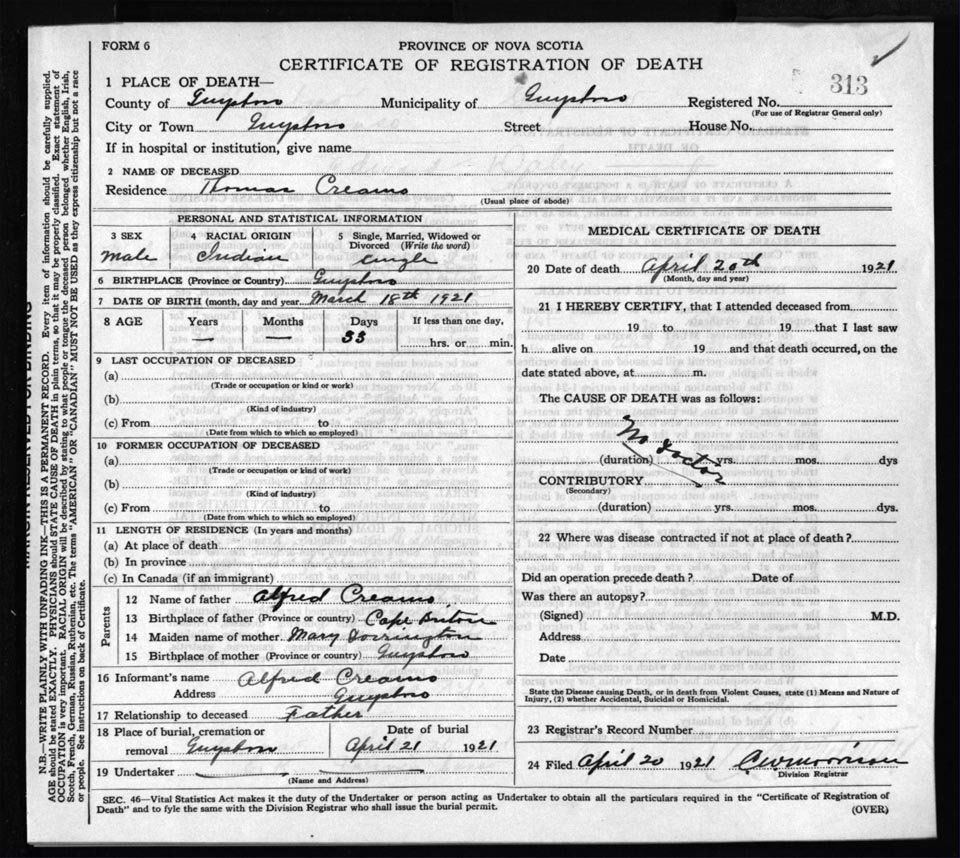 FORM 6
PROVINCE OF NOVA SCOTIA
CERTIFICATE OF REGISTRATION OF DEATH
313
1 PLACE OF DEATH—
County of Guysboro Municipality of Guysboro Registered No.
(For use of Registrar General only)
City or Town Guysboro Street House No.
If in hospital or institution, give name
2 NAME OF DECEASED
Residence Thomas Creams
(Usual place of abode)
PERSONAL AND STATISTICAL INFORMATION
3 SEX
Male
4 RACIAL ORIGIN
Indian
5 Single, Married, Widowed or Divorced (Write the word)
Single
6 BIRTHPLACE (Province or Country) Guysboro
7 DATE OF BIRTH (month, day and year) March 18th 1921
8 AGE Years Months Days If less than one day.
— — 33 hrs. or min.
9 LAST OCCUPATION OF DECEASED
(a)
(Trade or occupation or kind or work)
(b)
(Kind of industry)
(c) From to
(Date from which to which so employed)
10 FORMER OCCUPATION OF DECEASED
(a)
(Trade or occupation or kind of work)
(b)
(Kind of industry)
(c) From to
(Date from which to which so employed)
11 LENGTH OF RESIDENCE (in Years and months)
(a) At place of death
(b) In province
(c) In Canada (if an immigrant)
Parents
12 Name of father Alfred Creams
13 Birthplace of father (Province or country) Cape Briton
14 Maiden name of mother Mary
15 Birthplace of mother (Province or country) Guysboro
16 Informant's name Alfred Creams
Address Guysboro
17 Relationship to deceased Father
18 Place of burial, cremation or removal Guysboro
Date of burial
April 21 1921
19 Undertaker
(Name and Address)
MEDICAL CERTIFICATE OF DEATH
20 Date of death April 20th 1921
(Month, day and year)
21 I HEREBY CERTIFY, that I attended deceased from
19 to 19 that I last saw
h alive on 19 and that death occurred, on the
date stated above, at m.
The CAUSE OF DEATH was as follows:
No doctor
(duration) yrs. mos. dys
CONTRIBUTORY
(Secondary)
(duration) yrs. mos. dys.
22 Where was disease contracted if not at place of death?
Did an operation precede death? Date of
Was there an autopsy?
(Signed) M.D.
Address
Date
State the Disease causing Death, or in death from Violent Causes, state (1) Means and Nature of
Injury, (2) whether Accidental, Suicidal or Homicidal.
23 Registrar's Record Number
24 Filed April 20 1921 CW Morrison
Division Registrar
SEC. 46—Vital Statistics Act makes it the duty of the Undertaker or person acting as Undertaker to obtain all the particulars required in the "Certificate of Registration of
Death" and to fyle the same with the Division Registrar who shall issue the burial permit. (OVER)
MARGIN RESERVED FOR BINDING
N.B.—WRITE PLAINLY WITH UNFADING INK—THIS IS A PERMANENT RECORD. Every item of information should be carefully supplied.
AGE should be stated EXACTLY. PHYSICIANS should STATE CAUSE OF DEATH in plain terms, so that it may be properly classified. Exact statement of
OCCUPATION is very important. RACIAL ORIGIN will be described by stating to what people or tongue the deceased person belonged whether English, Irish,
Scotch, French, German, Russian, Ruthenian, etc. The terms "AMERICAN" OR "CANADIAN" MUST NOT BE USED as they express citizenship but not a race
or people. See instructions on back of Certificate.